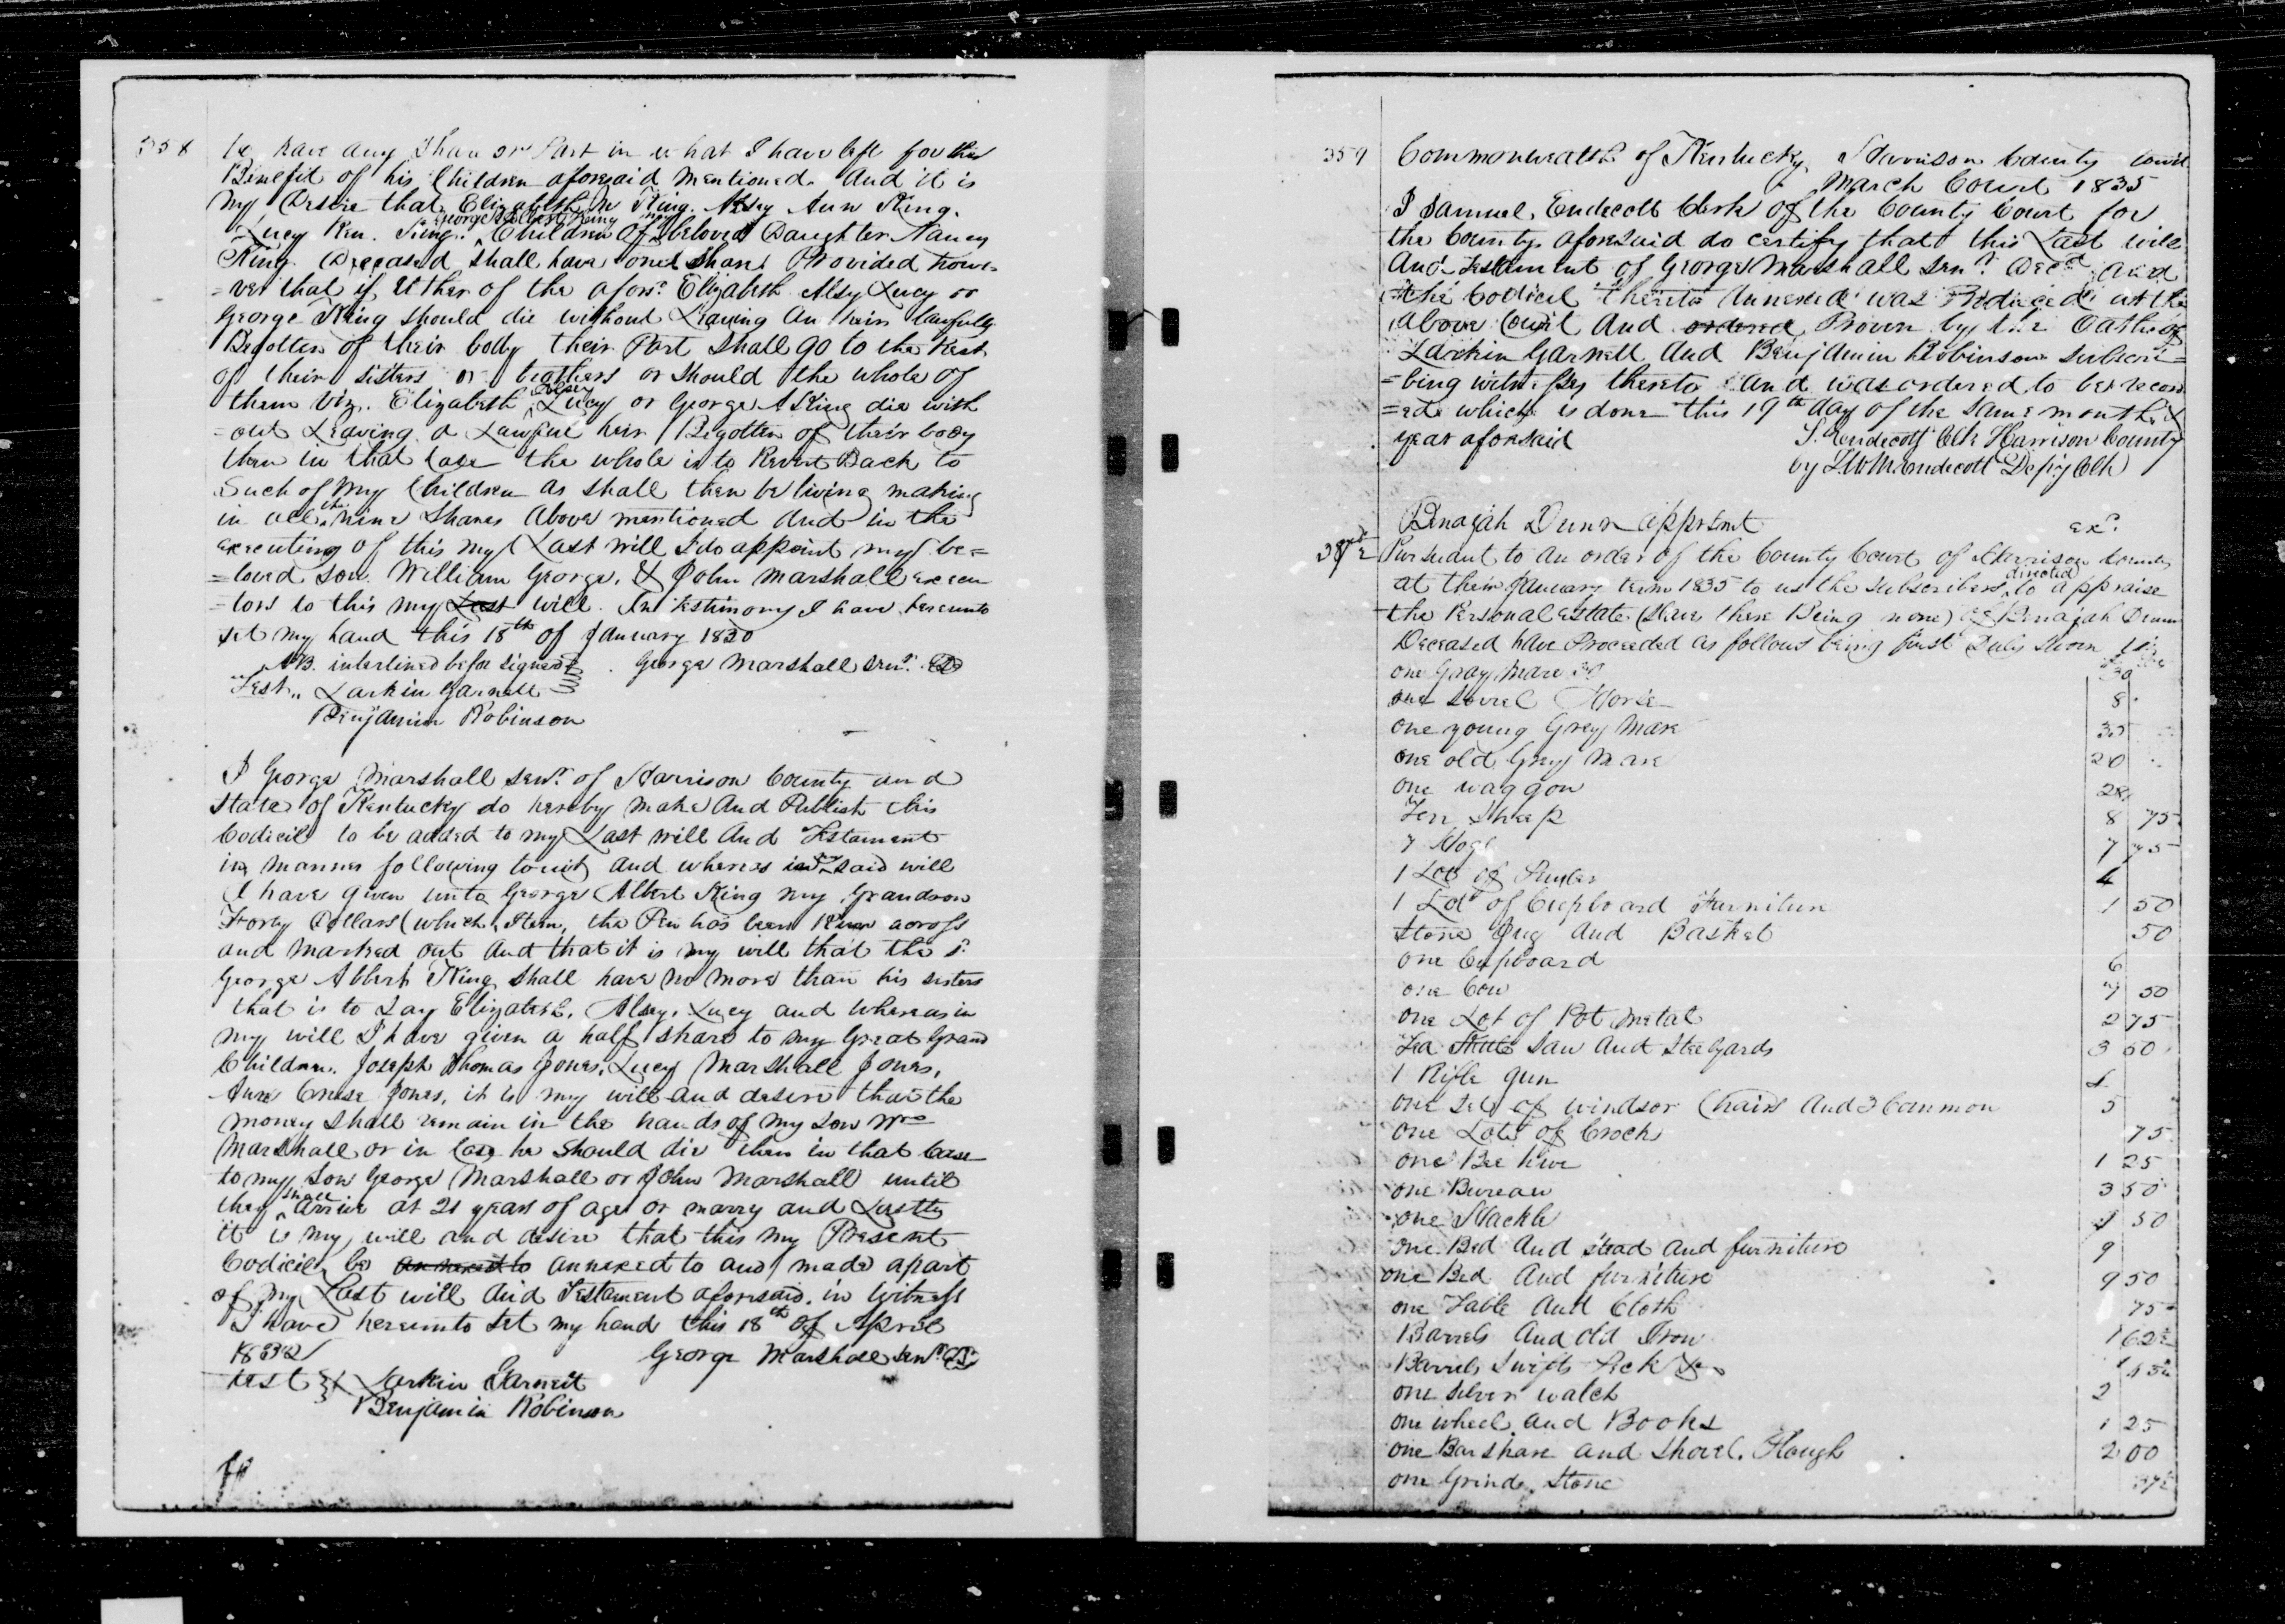 358
have any Share or Part in what I have left for the
Benefit of his Children aforesaid mentioned. And it is
my Desire that Elizabeth M King. Alsy Ann King.
Lucy King. George Albert King Children of my beloved Daughter Nancy
King. Deceased shall have one Share Provided howe-
=ver that if Either of the afors.d Elizabeth Alsy Lucy or
George King should die without Leaving An heir lawfully
Begotten of their body their Part shall go to the Rest
of their sisters or brothers or should the whole of
them viz. Elizabeth, Alsey Lucy or George A King die with
-out Leaving a Lawful heir Begotten of their body
then in that Case the whole is to Revert Back to
Such of my Children as shall then be living making
in all the nine Shares above mentioned And in the
executing of this my Last will I do appoint my be=
=loved son William George, & John Marshall execu
-tors to this my Last will. In testimony I have hereunto
set my hand this 18th of January 1830
NB. interlined before signed. George Marshall Senr.
Test,, Larkin Garnett
Benjamin Robinson
I George Marshall Senr. of Harrison County and
State of Kentucky do hereby make And Publish this
Codicil to be added to my Last will And Testament
in manner following towit, and whereas in my said will
I have given unto George Albert King my Grandson
Forty Dollars (which Item, the Pen has been Run across
and marked out And that it is my will that the sd
George Albert King shall have no more than his sisters
that is to Say Elizabeth, Alsey, Lucy and Whereas in
my will I have given a half share to my Great Grand
Children. Joseph Thomas Jones, Lucy Marshall Jones,
Ann Jones, it is my will and desire that the
money shall remain in the hands of my son Wm
Marshall or in Case he should die then in that Case
to my Son George Marshall or John Marshall until
they shall arrive at 21 years of age or marry and Lastly
it is my will and desire that this my Present
Codicil be annexed to annexed to and made apart
of my Last will And Testament aforesaid. in Witness
I have hereunto set my hand this 18th of April
1832 George Marshall Senr.
test Larkin Garnett
Benjamin Robinson
359 Commonwealth of Kentucky, Harrison County Court
March Court 1835
I Samuel, Endecott Clerk of the County Court for
the County aforesaid do certify that this Last will
And Testament of George Marshall Senr. Decd. And
the Codicil thereto Annexed was Produced at the
above Court And ordered Proven by the Oaths of
Larkin Garnett And Benjamin Robinson Subscri=
=bing witnesses thereto And was ordered to be record
=ed. which is done this 19th day of the same month &
year aforesaid S. Endecott Clk Harrison County
by Endecott Depy Clk
Benajah Dunn apprsmt exd.
Pursuant to an order of the County Court of Harrison County
at their January term 1835 to us the Subscribers directed to appraise
the Personal Estate (Slaves there Being none) of Benajah Dunn
Deceased have Proceeded as follows being first Duly Sworn
one Gray Mare 30
one Sorrel Horse 8
one young Grey Mare 35
one old Grey Mare 20
one waggon 28
Ten Sheep 8 75
7 Hogs 7 75
1 Lot of 4
1 Lot of Cupboard Furniture 1 50
Stone Jug And Basket 50
one Cupboard 6
one Cow 7 50
one Lot of Pot metal 2 75
Saw And Steelyards 3 50
1 Rifle gun
one Set of windsor Chairs And 3 Common 5
one Lot of Crocks 75
one Bee hive 1 25
one Bureau 3 50
one Hackle 1 50
one Bed And Stead and furniture 9
one Bed And furniture 9 50
one Table And Cloth 75
Barrels And old Iron 1 62½
Barrels Swifts &c
one Silver watch 2
one wheel and Books 1 25
one Barshare and Shovel. Plough 2 00
one Grind. Stone 37½